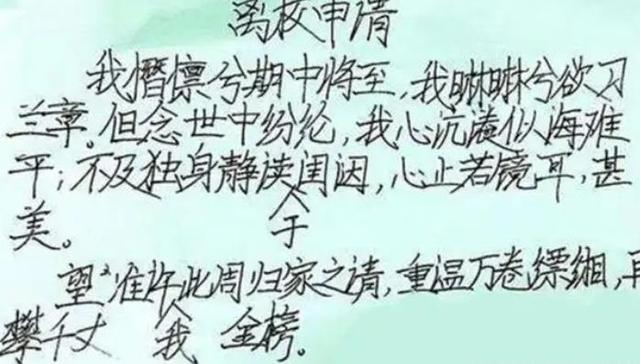 离校申请
我憯懔兮期中将至，我啉啉兮欲习
兰章。但念世中纷纶，我心沉淹似海难
平；不及独身静读于闺因，心止若镜耳，甚
美。
望准许我此周归家之请，重温万卷缥缃，再
攀千丈金榜。